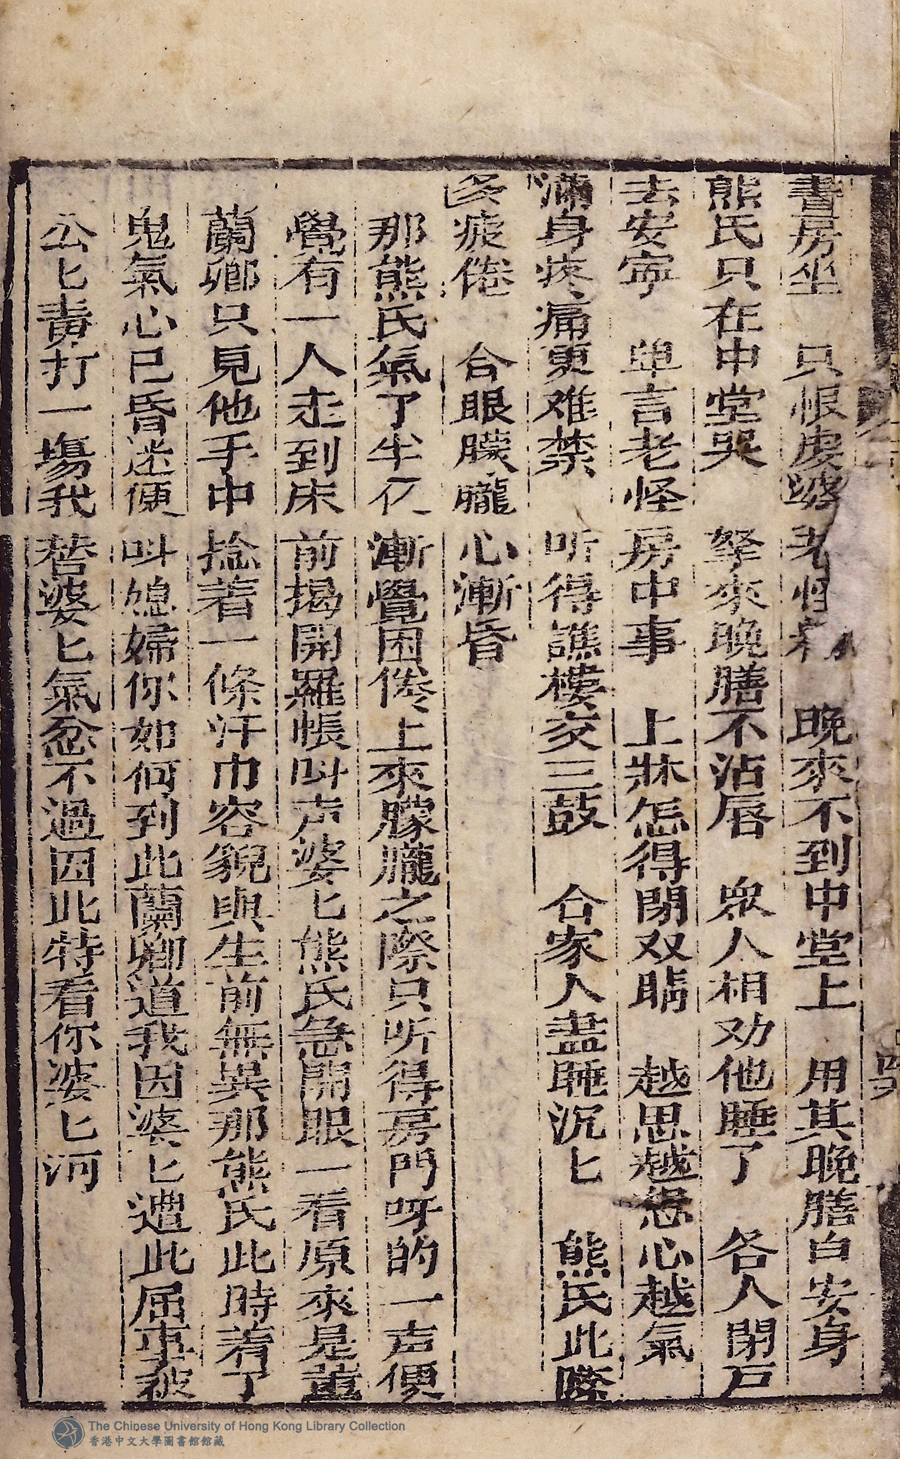 書房坐　只恨虔婆老怪　晚來不到中堂上　用其晚膳自安身
熊氏只在中堂哭　拏來晚膳不沾唇　眾人相劝他睡了　各人閉戶
去安寧　单言老怪房中事　上牀怎得閉双睛　越思越想心越氣
滿身疼痛更难禁　听得譙樓交三鼓　合家人盡睡沉匕　熊氏此際
多疲倦　合眼朦朧心漸昏
那熊氏氣了半夜漸覺困倦上來朦朧之際只听得房門呀的一声便
覺有一人走到床前揭開羅帳呌声婆匕熊氏急開眼一看原來是董
蘭卿只見他手中捻着一條汗巾容貌與生前無異那熊氏此時着了
鬼氣心已昏迷便呌媳婦你如何到此蘭卿道我因婆匕遭此屈事被
公匕責打一塲我替婆匕氣忿不過因此特看你婆匕河
The Chinese University of Hong Kong Library Collection
香港中文大學圖書館館藏